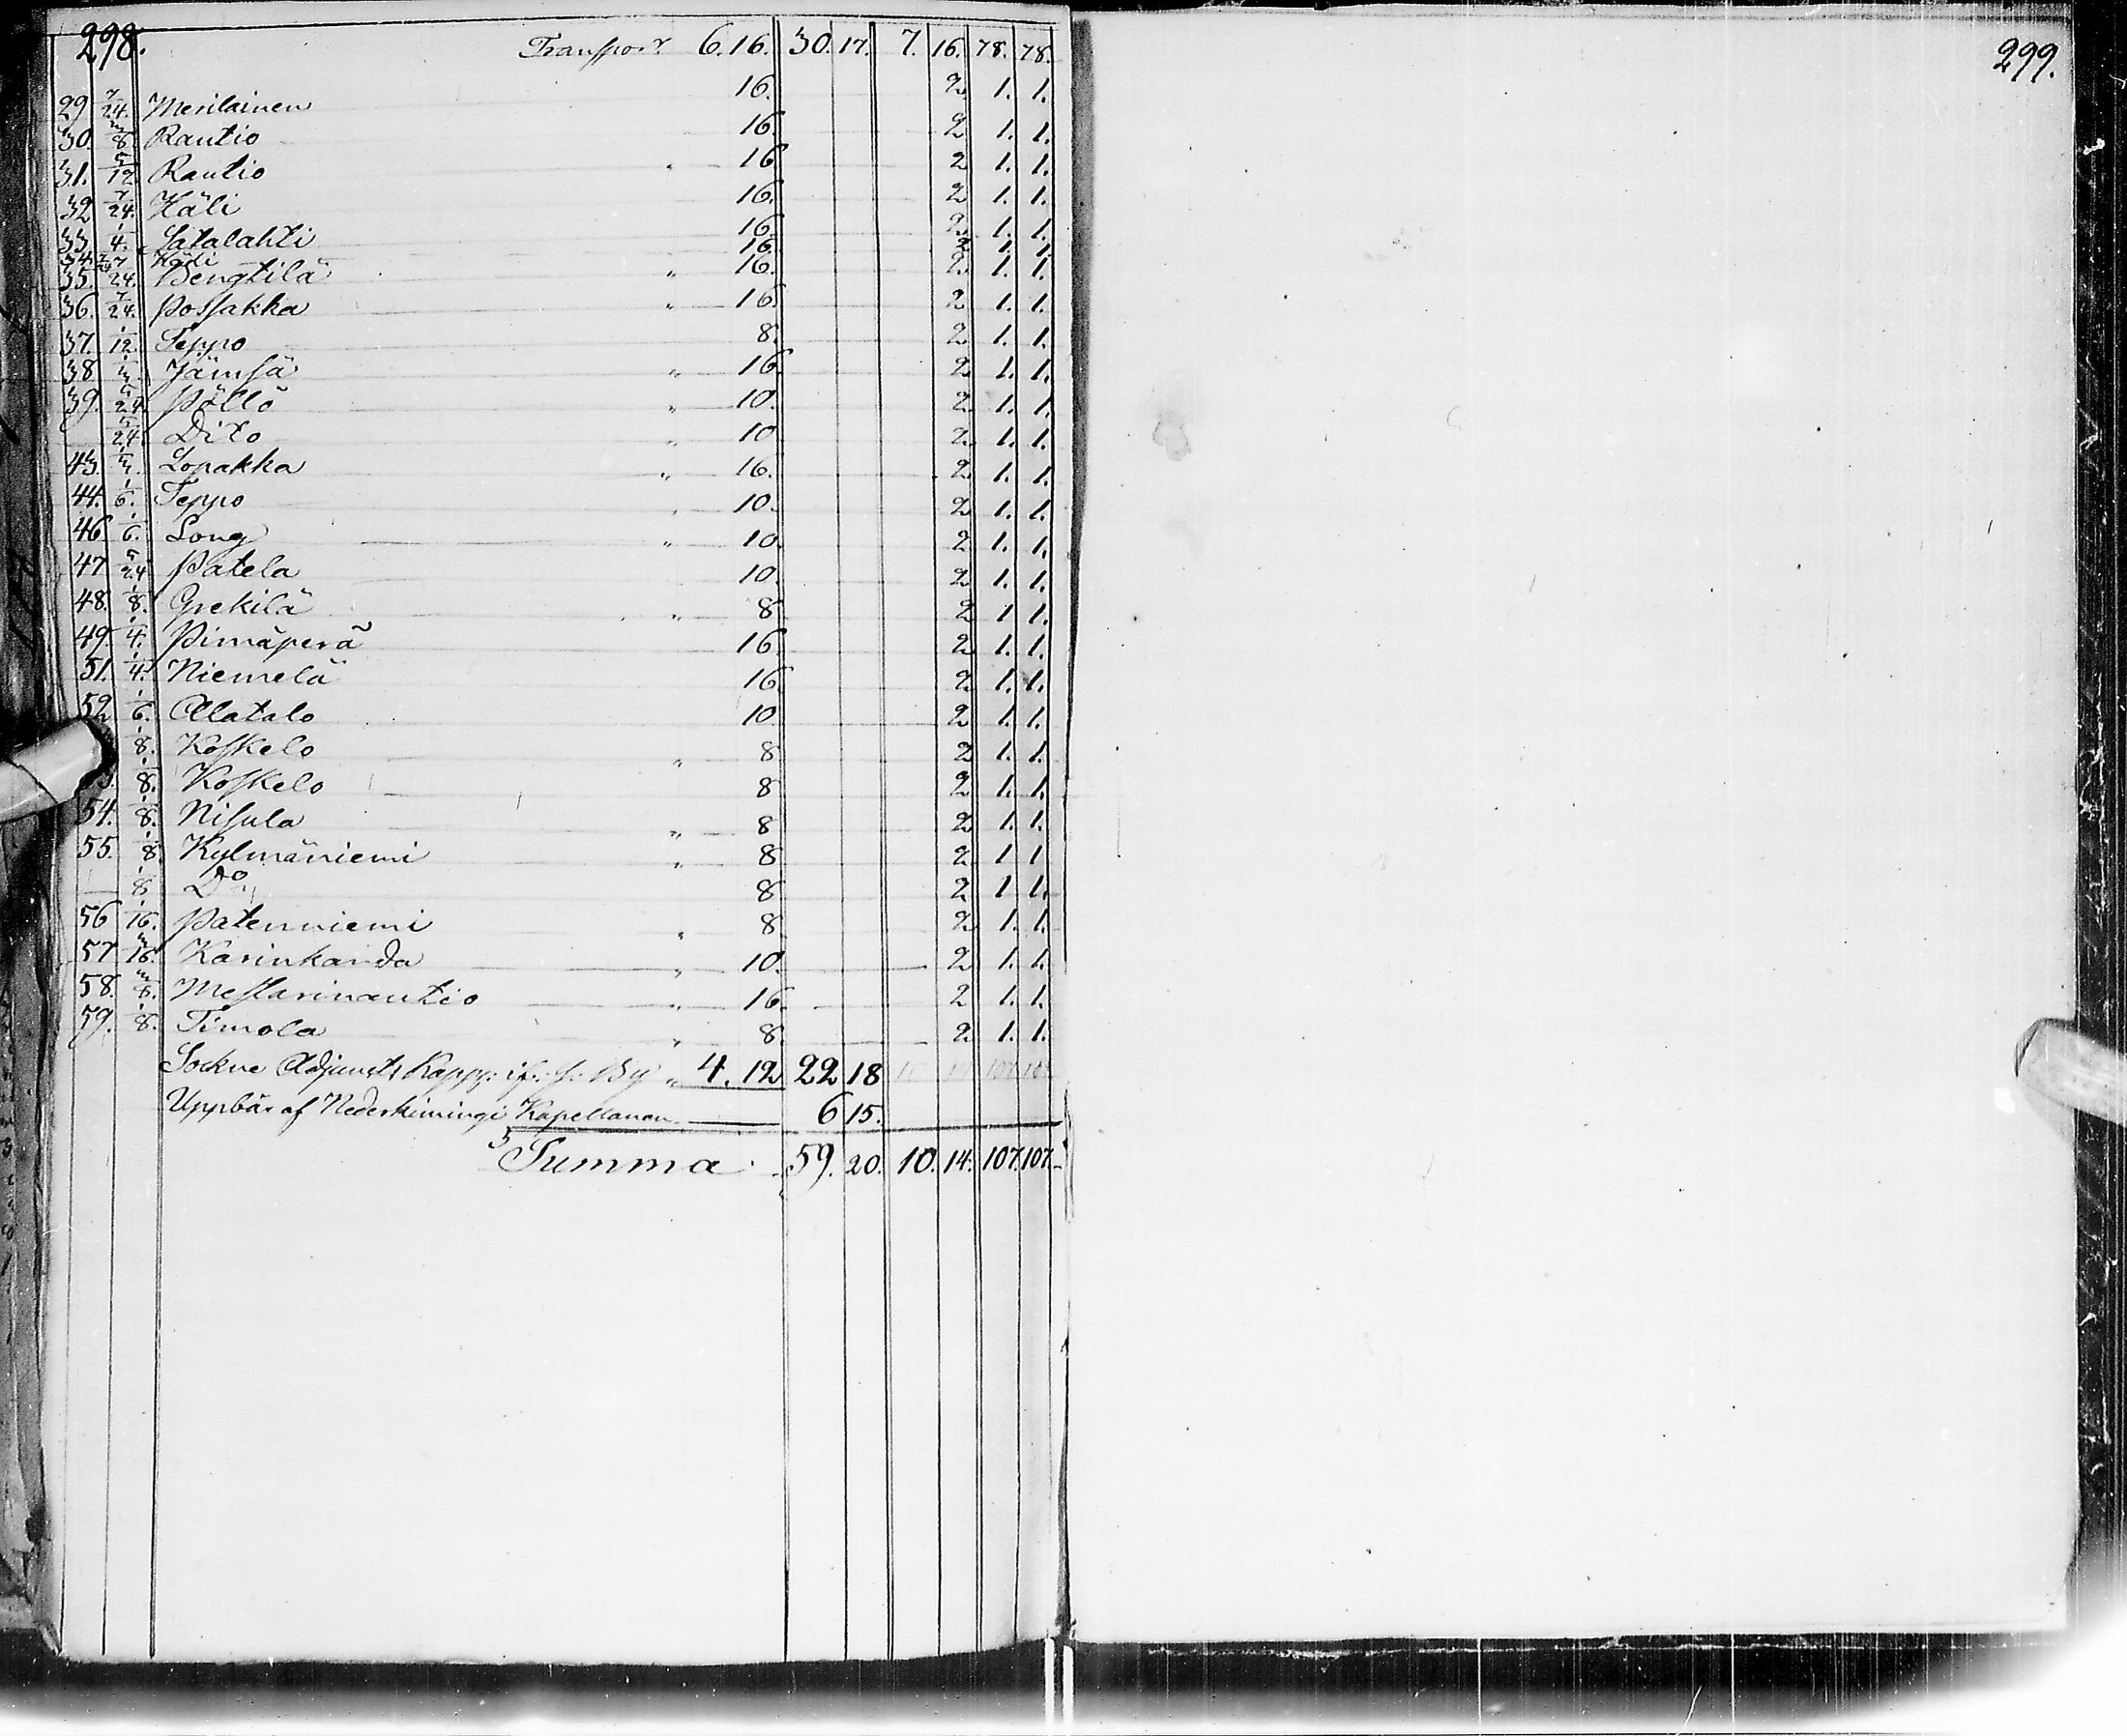 298.
Transport 6. 16. 30. 17. 7. 16. 78. 78.
29 7/24. Merilainen 16. 2 1. 1.
30. 3/8 Rautio 16. 2 1. 1.
31. 5/12 Rautio " 16 2 1. 1.
32 7/24. Häli 16. 2 1. 1.
33. 1/4. Satalahti 16. 2 1. 1.
34. 7/24 Häli 16. 2 1. 1.
35. 7/24. Bengtilä " 16. 2 1. 1.
36. 7/24. Possakka " 16. 2 1. 1.
37. 1/12. Seppo 8. 2 1. 1.
38 1/3 Jämsä " 16 2 1. 1.
39. 5/24. Pöllö " 10. 2 1. 1.
5/24. Dito " 10 2. 1. 1.
43. 1/3. Lopakka " 16. 2 1. 1.
44. 1/6. Seppo " 10. 2 1. 1.
46 1/6. Long " 10. 2 1. 1.
47 5/24 Patela 10. 2 1. 1.
48. 1/8. Grekilä " 8 2 1 1.
49. 1/4. Pimäperä 16. 2 1. 1.
51. 1/4. Niemelä 16. 2 1. 1.
52 1/6. Alatalo 10 2 1. 1.
1/8. Koskelo " 8 2 1. 1.
1/8. Koskelo 8 2 1. 1.
54. 1/8. Nisula " 8 2 1. 1.
55. 1/8 Kylmäniemi " 8 2 1 1
— 1/8 Do 8 2 1 1.
56 1/16. Patenniemi " 8. 2 1. 1.
57 3/16. Karinkanda " 10. 2 1. 1.
58. 3/8. Mestarinautio " 16. 2 1. 1.
59. 1/8. Timola " 8. 2 1. 1.
Sockne Adjuncts Kapp: By " 4. 12 22 18
Uppbär af Nederkimingi Kapellanen 6 15.
Summa 59. 20. 10. 14. 107. 107.
299.